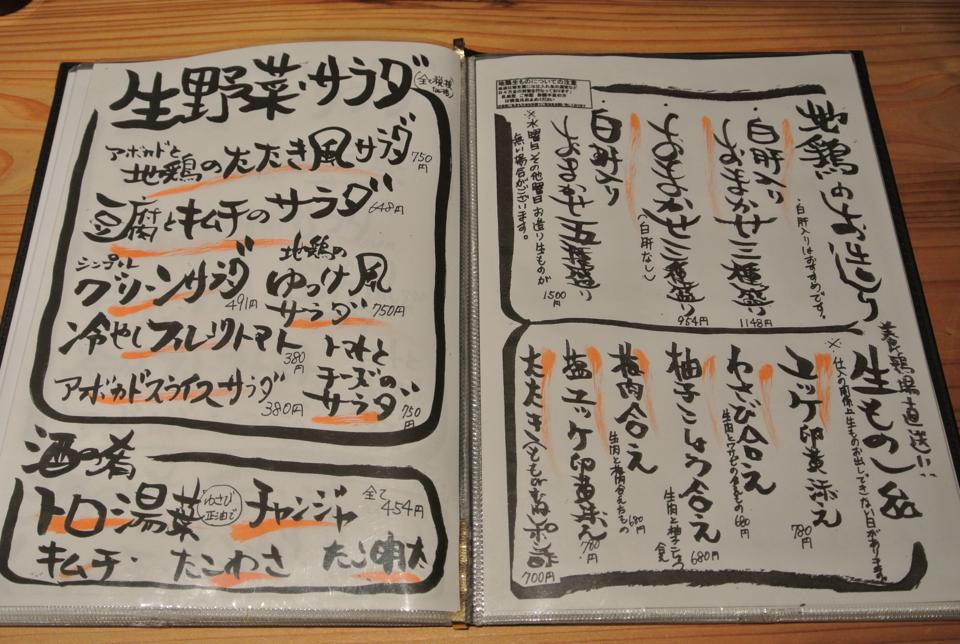 生野菜サラダ
(全て税抜価格)
アボカドと
地鶏のたたき風サラダ 750円
豆腐とキムチのサラダ 648円
シンプル
グリーンサラダ 491円
地鶏の
ゆっけ風
サラダ 750円
冷やしフルーツトマト 380円
トマトと
チーズの
サラダ 750円
アボカドスライスサラダ 380円
酒の肴
全て 454円
トロ湯葉 わさび正油で チャンジャ
キムチ・たこわさ たこ明太
地鶏のお造り
・白肝入りはおすすめです。
白肝入り
おまかせ三種盛り 1148円
おまかせ三種盛り
(白肝なし) 954円
白肝入り
おまかせ五種盛り 1500円
※水曜日、その他曜日お造り生ものが
無い場合がございます。
養鶏場直送!!
生もの
※仕入の関係上生ものお出しできない日があります。
ユッケ卵黄添え 780円
わさび合え
生肉とワサビの 680円
柚子こしょう合え
生肉と柚子こしょう 680円
梅肉合え
生肉と梅肉合えたもの 680円
塩ユッケ卵黄添え 780円
たたき(ももorむね)ポン酢 700円